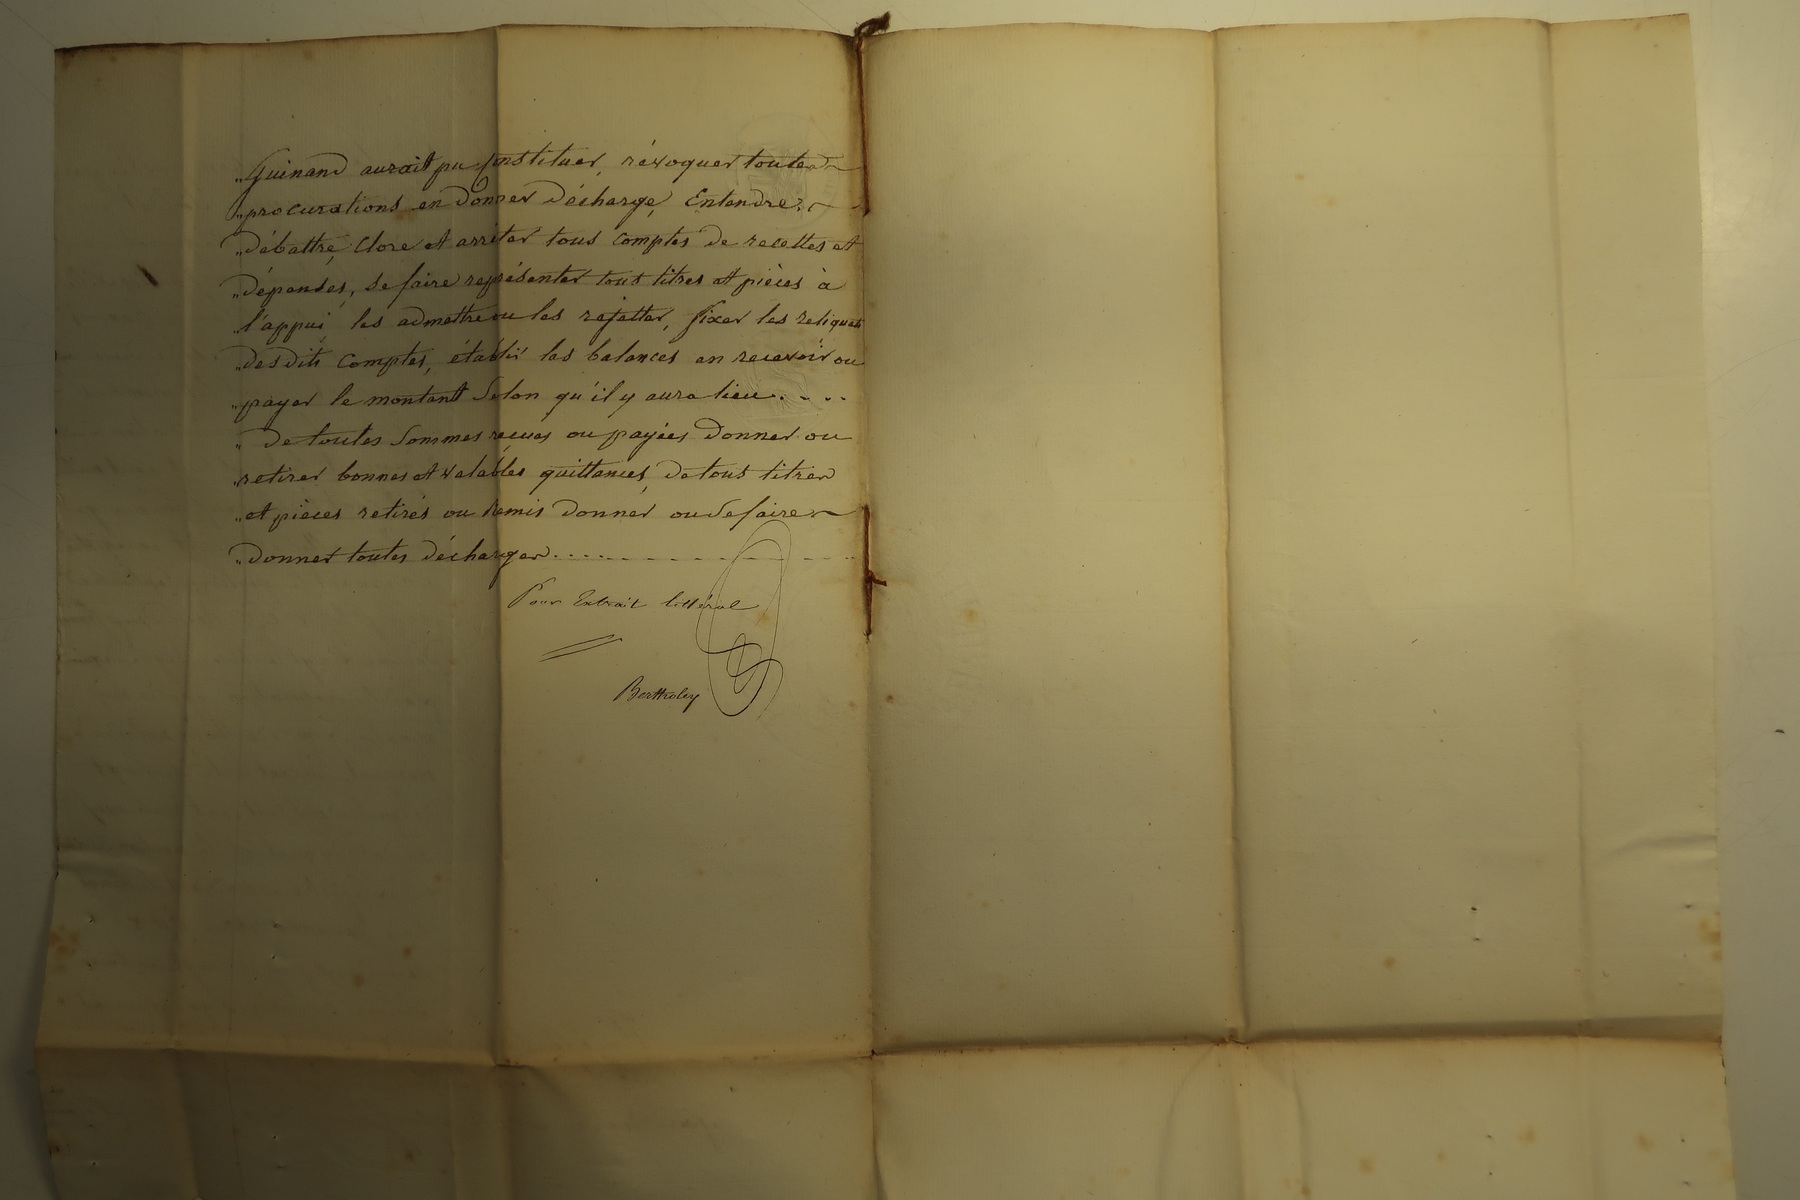 „ Guinand aurait pu constituer, révoquer toutes
„ procurations en donner décharge, Entendre,
„ débattre, clore et arrêter tous comptes de recettes et
„ dépenses, se faire représenter tous titres et pièces à
„ l'appui les admettre ou les rejetter, fixer les reliquats
„ desdits comptes, établir les balances en recevoir ou
„ payer le montant selon qu'il y aura lieu. - - -
„ De toutes sommes recues ou payées donner ou
„ retirer bonnes et valables quittances, de tous titres
„ et pièces retirés ou remis donner ou se faire
„ donner toutes décharges. . . . . - - - - - - -
Pour Extrait littéral
Bertholey